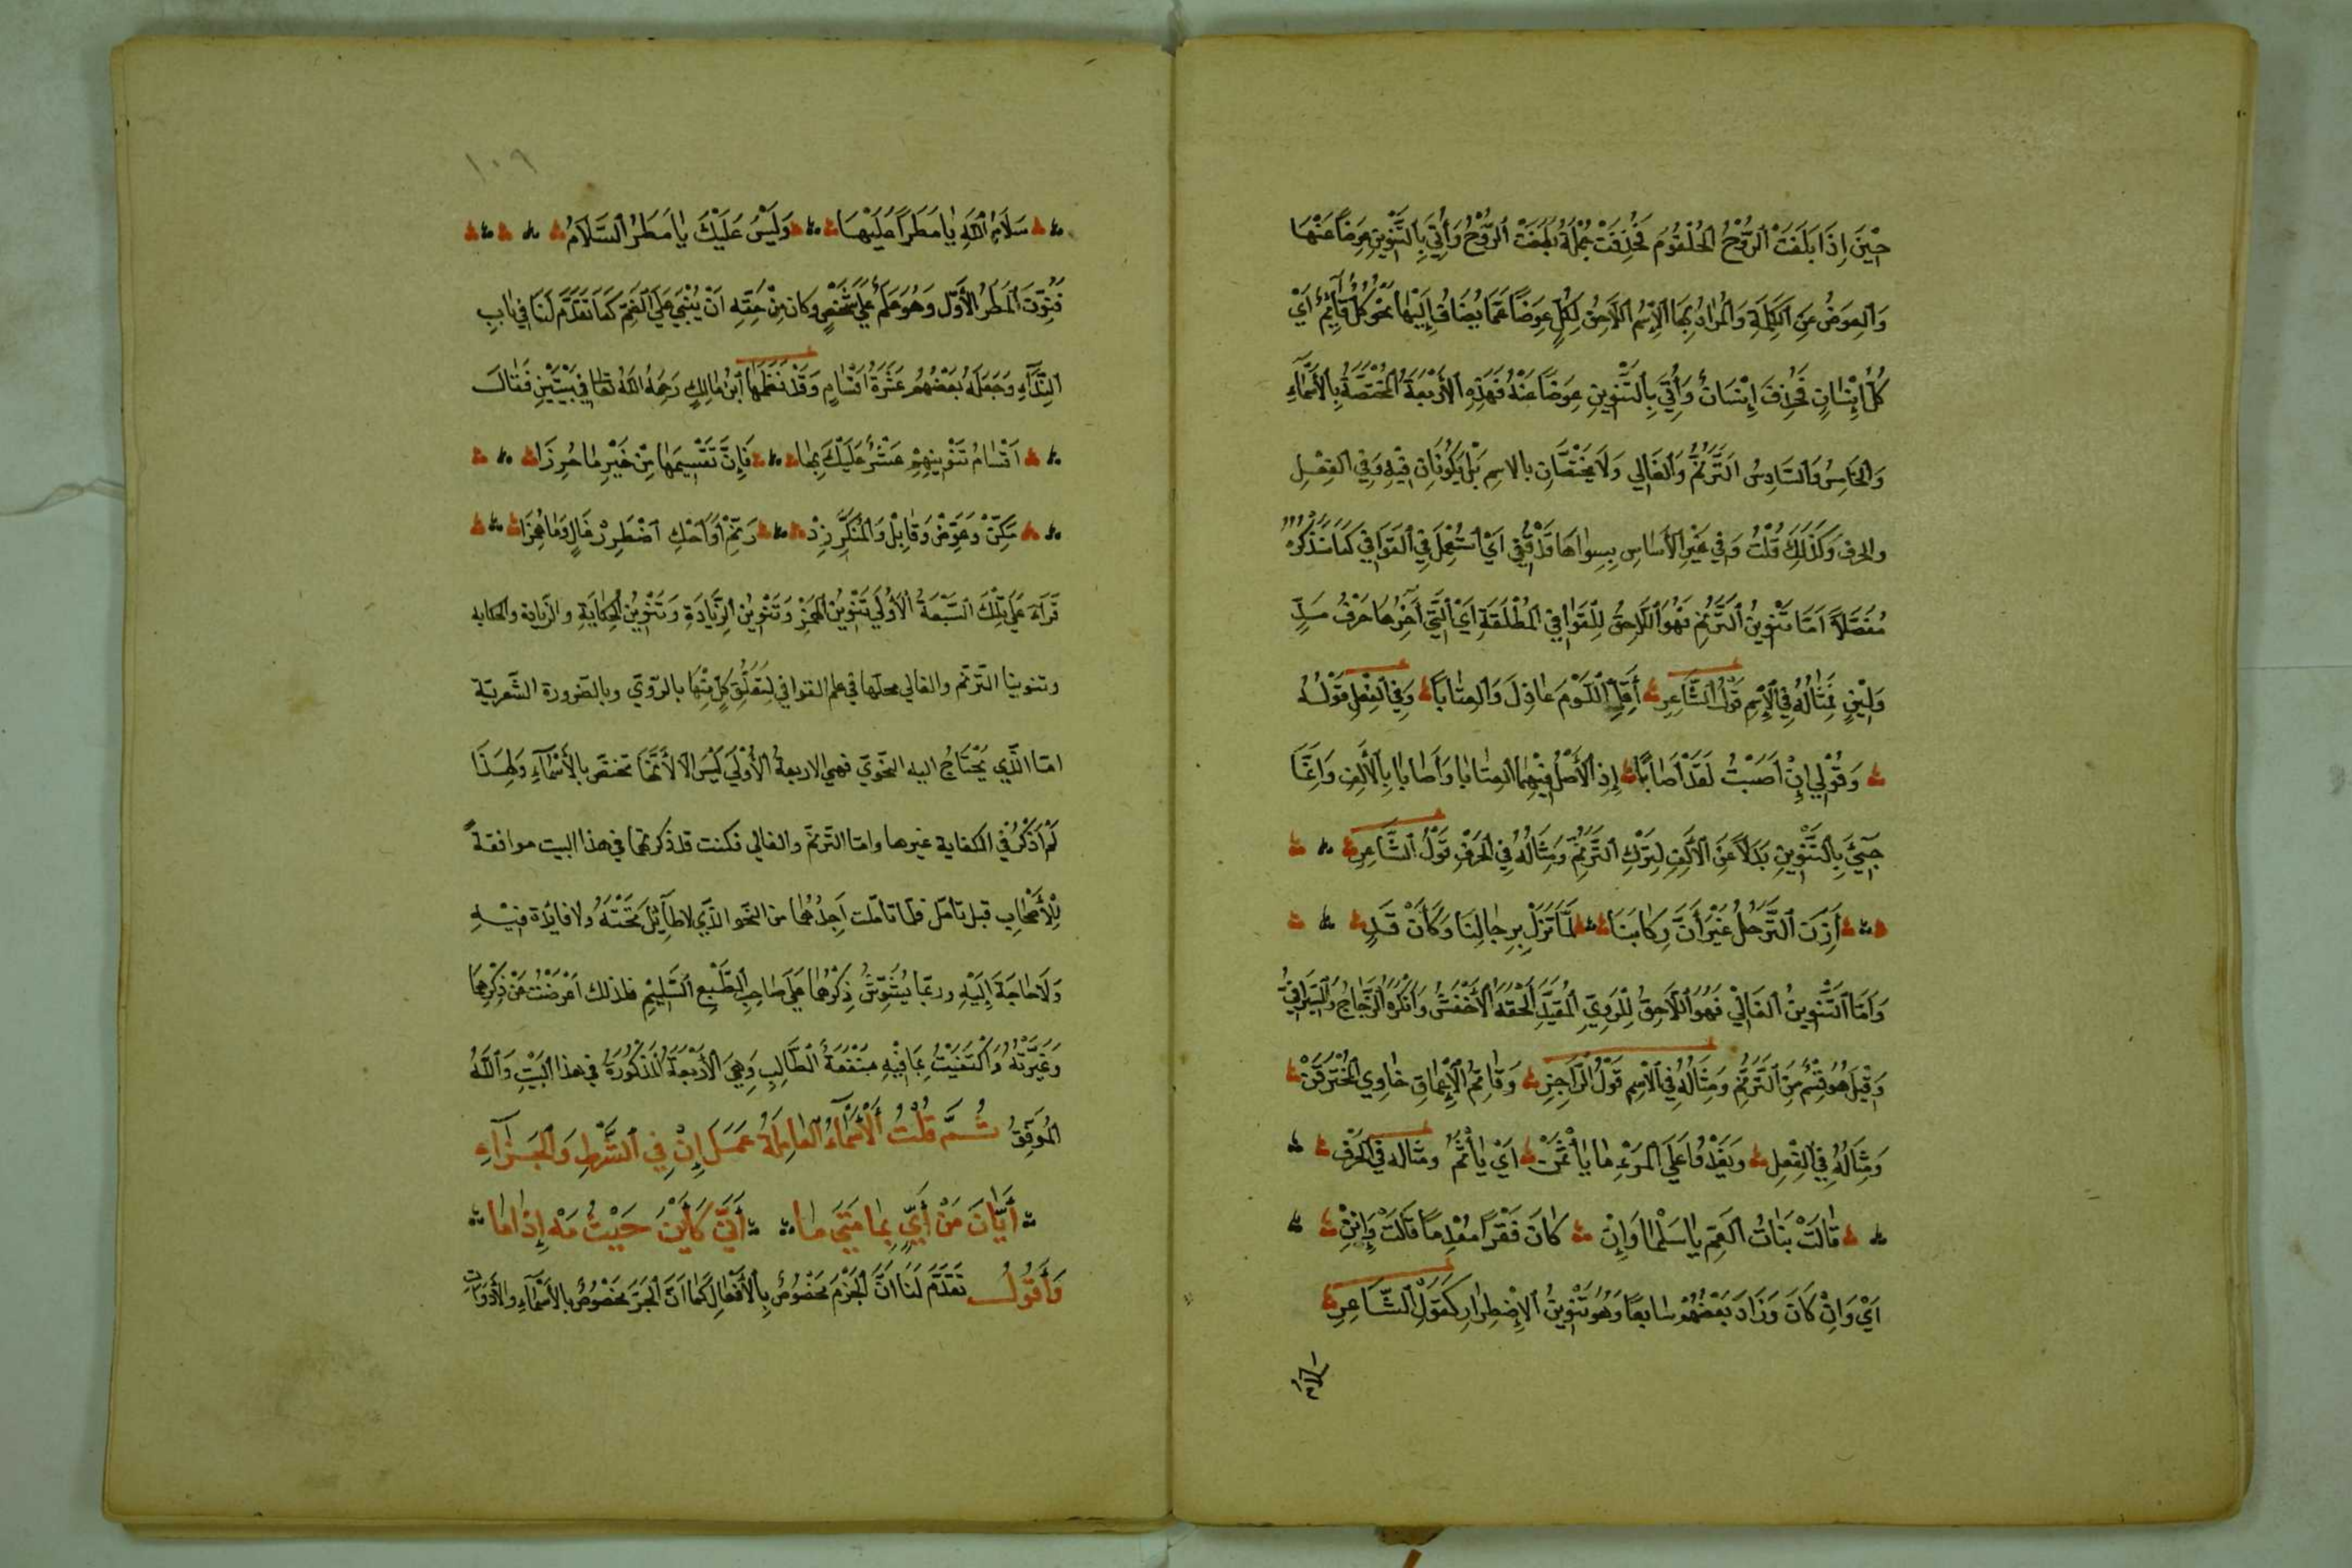 حِيْنَ اِذَا بَلَغَتْ الرُّوْحُ الحُلْقُومَ فَحُذِفَتْ جُمْلَةُ بَلَغَتْ الرُّوْحُ وَأُتِيَ بِالتَّنْوِيْنِ عِوَضًا عَنْهَا
وَالعِوَضُ عَنِ الكَلِمَةِ وَالمُرَادُ بِهَا الاِسْمُ اللاَّحِقُ لِكُلٍّ عِوَضًا عَمَّا يُضَافُ اِلَيْهَا نَحْوُ كُلٌّ قَآئِمٌ اَيْ
كُلُّ اِنْسَانٍ فَحُذِفَ اِنْسَانٌ وَأُتِيَ بِالتَّنْوِينِ عِوَضًا عَنْهُ فَهَذِهِ الأَرْبَعَةُ المُخْتَصَّةُ بِالأَسْمَآءِ
وَالخَامِسُ وَالسَّادِسُ التَّرَنُّمُ وَالغَالِي وَلاَ يَخْتَصَّانِ بالاسِمِ بَلْ يَكُونَانِ فِيْهِ وَفِي الفِعْلِ
والحرف وَكَذَلِكَ قُلْتُ وَفِي غَيْرِ الأَسَاسِ بِسِوَاهَا قَدْ قُفِّي اَيْ اسْتُعْمِلَ فِي القَوَافِي كَمَا سَنَذْكُرُهُ
مُفَصَّلاً اَمَّا تَنْوِينُ التَّرَنُّمِ فَهُوَ اللاَّحِقُ لِلْقَوَافِي المُطْلَقَةِ اَيْ الَّتِي آخِرُهَا حَرْفُ مَدٍّ
وَلِيْنٍ فَمِثَالُهُ فِي الاِسْمِ قَوْلُ الشَّاعِرِ أَقِلِّي اللَّوْمَ عَاذِلَ وَالعِتَابًا وَفِي الفِعْلِ قَوْلُهُ
وَقُوْلِي اِنْ اَصَبْتُ لَقَدْ اَصَابًا اِذِ الأَصْلُ فِيْهِمَا العِتَابَا وَاَصَابَا بِالأَلِفِ وَاِنَّمَا
جِيْئَ بِالتَّنْوِينِ بَدَلاً عَنِ الأَلِفِ لِتَرْكِ التَّرَنُّمِ وَمِثَالُهُ فِي الحَرْفِ قَوْلُ الشَّاعِرِ
أَزِفَ التَّرَحُّلُ غَيْرَ أَنَّ رِكَابَنَا لَمَّا تَزُلْ بِرِحَالِنَا وَكَأَنْ قَدٍ
وَاَمَّا التَّنْوِينُ الغَالِيْ فَهُوَ اللاَّحِقُ لِلْرَوِيِّ المُقَيَّدِ اَلْحَقَهُ الأَخْفَشُ وَاَنْكَرَهُ الزَّجَّاجُ وَالسِّيرَافِيُّ
وَقِيْلَ هُوَ قِسْمٌ مِنَ التَّرَنُّمِ وَمِثَالُهُ فِي الاسِمِ قَوْلُ الرَّاجِزِ وَقَاتِمِ الاَعْمَاقِ خَاوِي المُخْتَرَقَنْ
وَمِثَالُهُ فِي الفِعْلِ وَيَعْدُوا عَلَى المَرْءِ مَا يَأْتَمِرَنْ اَيْ يَأْتَمُّ ومثاله فِي الحَرْفِ
قَالَتْ بَنَاتُ العَمِّ يَا سَلْمَا وَاِنْ كَانَ فَقْرًا مُعْدِمًا قَالَتْ وَاِنِنْ
اَيْ وَاِنْ كَانَ وَزَادَ بَعْضُهُمْ سَابِعًا وَهُوَ تَنْوِينُ الاِضْطِرَارِ كَقَوْلِ الشَّاعِرِ
سلام
١٠٩
سَلاَمُ اللهِ يَا مَطَرًا عَلَيْهَا وَلَيْسَ عَلَيْكَ يَا مَطَرُ السَّلاَمُ
فَنُوِّنَ المَطَرُ الأَوَّلُ وَهُوَ عَلَمٌ عَلَى شَخْصٍ وكان مِنْ حَقِّهِ اَنْ يُبْنَى عَلَى الضَّمِّ كَمَا تَقَدَّمَ لَنَا فِي بَابِ
النِّدَآءِ وَجَعَلَهُ بَعْضُهُمْ عَشَرَةُ اَقْسَامٍ وَقَدْ نَظَمَهَا ابْنُ مَالِكٍ رَحِمَهُ اللهُ تَعَا فِي بَيْتَيْنِ فَقَالَ
اَقْسَامُ تَنْوِينِهِمْ عَشْرٌ عَلَيْكَ بِهَا فَاِنَّ تَقْسِيمَهَا مِنْ خَيْرِ مَا حُرِزَا
مَكِّنْ وَعَوِّضْ وَقَابِلْ وَالمُنَكَّرِ زِدْ وَرَنِّمْ اَوْ اَحْكِ اضْطَرِرْ غَالٍ وَمَا هُمِزَا
قَرَاءَ عَلَى تِلْكَ السَّبْعَةُ الأُوْلَى تَنْوِينُ الهَمْزِ وَتَنْوِينُ الزِّيَادَةِ وَتَنْوِينُ الحِكَايَةِ والزيادة والحكايه
وتنوينا الترنّم والغالي محلّها في علم القوافي لِتَعَلُّقِ كُلٍّ مِنْهَا بالرّويّ وبالضّرورة الشّعريّة
امّا الّذي يَحْتَاجُ اليه النحويّ فهي الاربعة الأُوْلَى لَيْسَ الاّ لأَنَّهَا تختصّ بالأَسْمَآءِ وَلِهَذَا
لَمْ اَذْكُرْ فِي الكفاية غيرها وامّا الترنّم والغالي فكنت قد ذكرتهما في هذا البيت موافقةً
لِلأَصْحَابِ قبل تأمّل فلمّا تأمّلت اَجِدُهُمَا من النحو الّذي لاَ طَآئِلَ تَحْتَهُ ولا فايدة فِيْهِ
وَلاَ حَاجَةَ اِلَيْهِ وربمّا يُشَوِّشُ ذِكْرُهُمَا عَلَى صَاحِبِ الطَّبْعِ السَّلِيْمِ فلذلك اَعْرَضْتُ عَنْ ذِكْرِهِمَا
وَغَيَّرْتُهُ وَاكْتَفَيْتُ بِمَا فِيْهِ مَنْفَعَةُ الطَّالِبِ وَهِيَ الأَرْبَعَةُ المَذْكُورَةُ في هذا البَيْتِ وَاللهُ
المُوَفِّقُ ثُمَّ قُلْتُ اَلأَسْمَآءُ العَامِلَةُ عَمَلَ اِنْ فِي الشَّرْطِ وَالجَزَآءِ
اَيَّانَ مَنْ اَيٍّ بِمَا مَتَى مَا اَنَّى كَاَيْنَ حَيْثُ مَهْ اِذْ اَمَا
وَأَقُولُ تَقَدَّمَ لَنَا اَنَّ الجَزْمَ مَخْصُوصٌ بِالأَفْعَالِ كَمَا اَنَّ الجَرَّ مَخْصُوصٌ بِالأَسْمَآءِ والأَدَوَاتِ